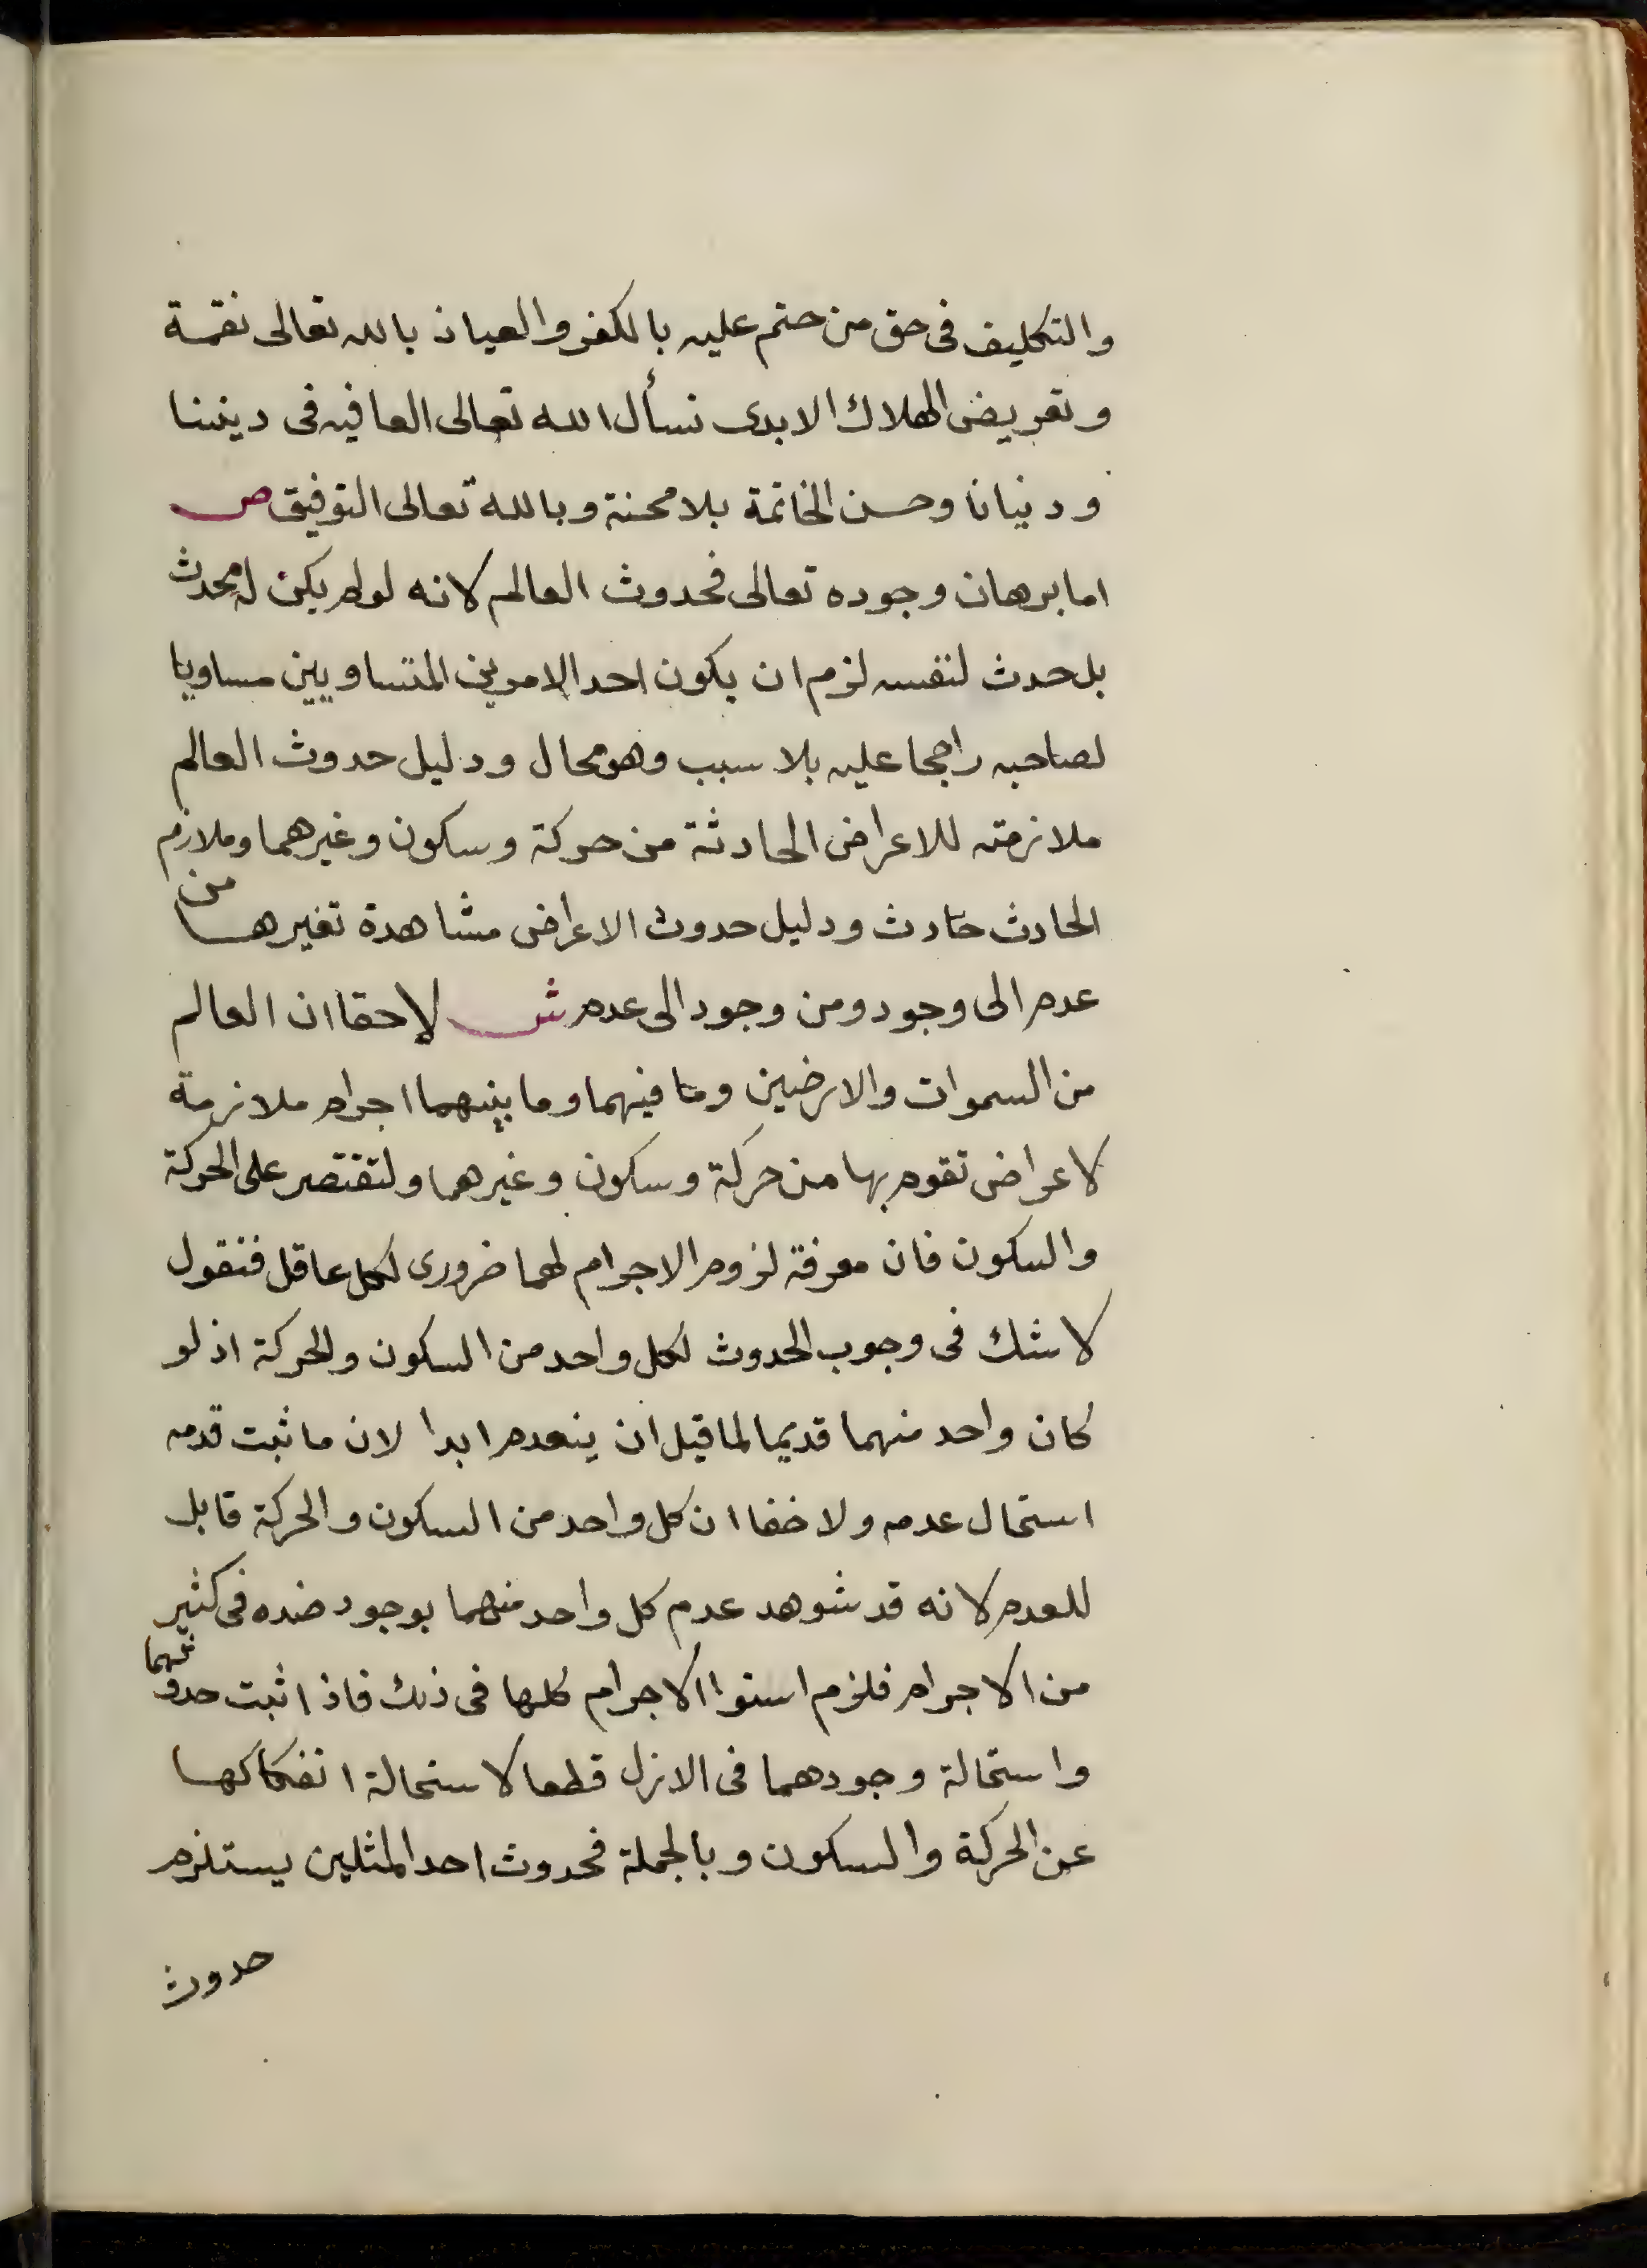 والتكليف فى حق من حتم عليه بالكفر والعياذ بالله تعالى نقمة
وتعريض الهلاك الابدى نسأل الله تعالى العافيه فى ديننا
ودنيانا وحسن الخاتمة بلا محنة وبالله تعالى التوفيق ص
اما برهان وجوده تعالى فحدوث العالم لانه لو لم يكن له محدث
بل حدث لنفسه لزم ان يكون احد الامرين المتساويين مساويا
لصاحبه راجحا عليه بلا سبب وهو محال ودليل حدوث العالم
ملازمته للاعراض الحادثة من حركة وسكون وغيرهما وملازم
الحادث حادث ودليل حدوث الاعراض مشاهدة تغيرها من
عدم الى وجود ومن وجود الى عدم ش لاحقا ان العالم
من السموات والارضين وما فيهما وما بينهما اجرام ملازمة
لاعراض تقوم بها من حركة وسكون وغيرهما ولتقتصر على الحركة
والسكون فان معرفة لزوم الاجرام لهما ضرورى لكل عاقل فنقول
لا شك فى وجوب الحدوث لكل واحد من السكون والحركة اذ لو
كان واحد منهما قديما لما قبل ان ينعدم ابدا لان ما ثبت قدمه
استحال عدمه ولا خفا ان كل واحد من السكون والحركة قابل
للعدم لانه قد شوهد عدم كل واحد منهما بوجود ضده فى كثير
من الاجرام فلزم استوا الاجرام كلها فى ذلك فاذا ثبت حدوثهما
واستحالة وجودهما فى الازل قطعا لاستحالة انفكاكها
عن الحركة والسكون وبالجملة فحدوث احد المثلين يستلزم
حدوث